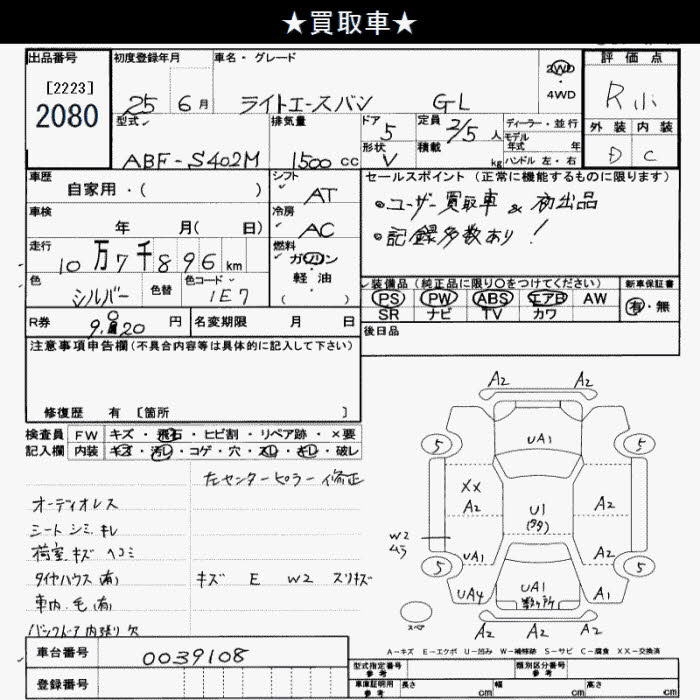 ★買取車★
出品番号
[2223]
2080
初度登録年月
25 6月
車名・グレード
ライトエースバン GL
2WD
・
4WD
評価点
R小
外装 内装
D C
型式
ABF-S402M
排気量
1500cc
ドア
5
形状
V
定員
2/5人
積載
kg
ディーラー・並行
モデル
年式 年
ハンドル 左・右
車歴
自家用・( )
シフト
AT
車検
年 月( 日)
冷房
AC
走行
10万7千896km
燃料
ガソリン
・
軽・油
( )
色
シルバー
色替
色コード
1E7
セールスポイント(正常に機能するものに限ります)
・ユーザー買取車 & 初出品
・記録多数あり!
装備品(純正品に限り○をつけてください)
PS PW ABS エアB AW
SR ナビ TV カワ
新車保証書
有・無
R券
円
名変期限 月 日
後日品
注意事項申告欄(不具合内容等は具体的に記入して下さい)
修復歴 有 [箇所 ]
検査員
記入欄
FW キズ・飛石・ヒビ割・リペア跡・×要
内装 キズ・汚レ・コゲ・穴・スレ・キレ・破レ
左センターピラー修正
オーディオレス
シート シミ キレ
荷室 キズ ヘコミ
タイヤハウス (有)
キズ E W2 スリキズ
車内 毛(有)
バックドア 内張り 欠
A2 A2
UA1
5 5
XX
A2
U1
A2
W2
ムラ
UA1
A2
5 5
UA4
UA1
A1
スペア
A2 A2 A2
A-キズ E-エクボ U-凹み W-補修跡 S-サビ C-腐食 XX-交換済
車台番号
0039108
登録番号
型式指定番号
参考
類別区分番号
参考
車庫証明用
参考
長さ cm
幅 cm
高さ cm